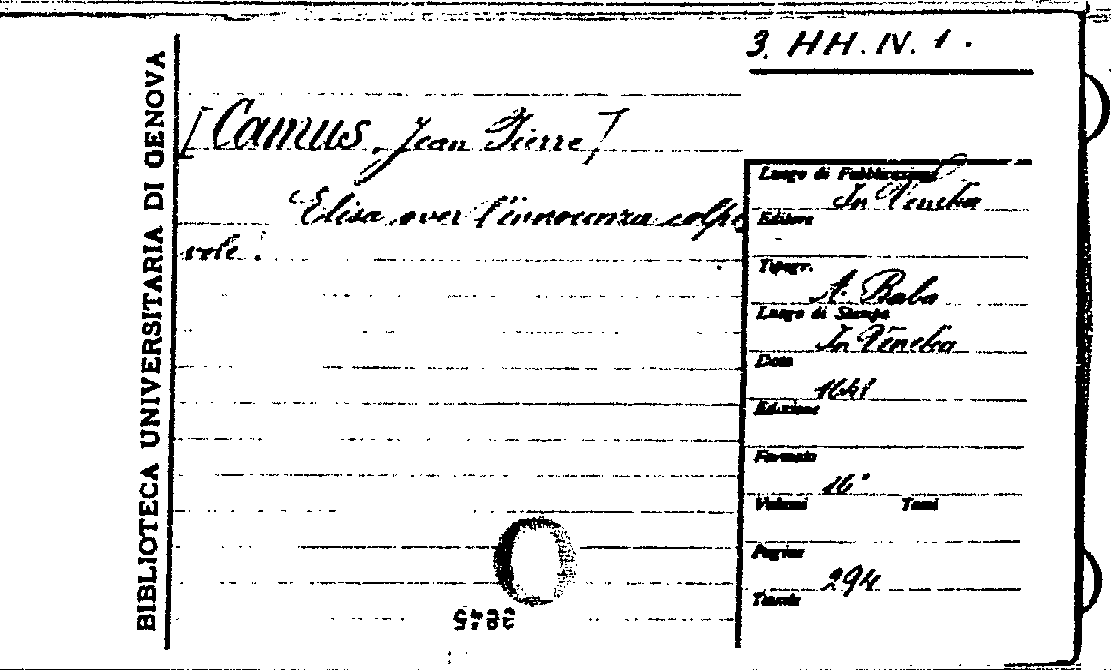 BIBLIOTECA UNIVERSITARIA DI GENOVA
3. HH. IV. 1.
[Camus, Jean Pierre]
Elisa over l'innocenza colpe
vole.
Luogo di Pubblicazione
In Venetia
Editore
Tipogr.
A. Baba
Luogo di Stampa
In Venetia
Data
Edizione
Formato
16°
Volumi Tomi
Pagine
294
Tavole